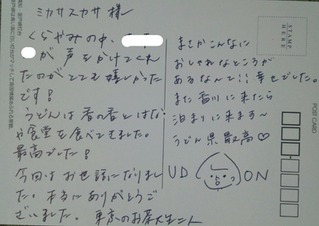 ミカサスカサ 様
くらやみの中、
が声をかけてくれ
たのがとても嬉しかった
です!
うどんは春の香とはなや
や食堂を食べてきました。
最高でした!
今回はお世話になりまし
た。本当にありがとうご
ざいました。東京のお茶大生ニト
まさかこんなに
おしゃれなところが
あるなんて!!幸せでした。
また香川に来たら
泊まりに来ます〜
うどん県最高♡
UD ON
STAMP
HERE
POST CARD